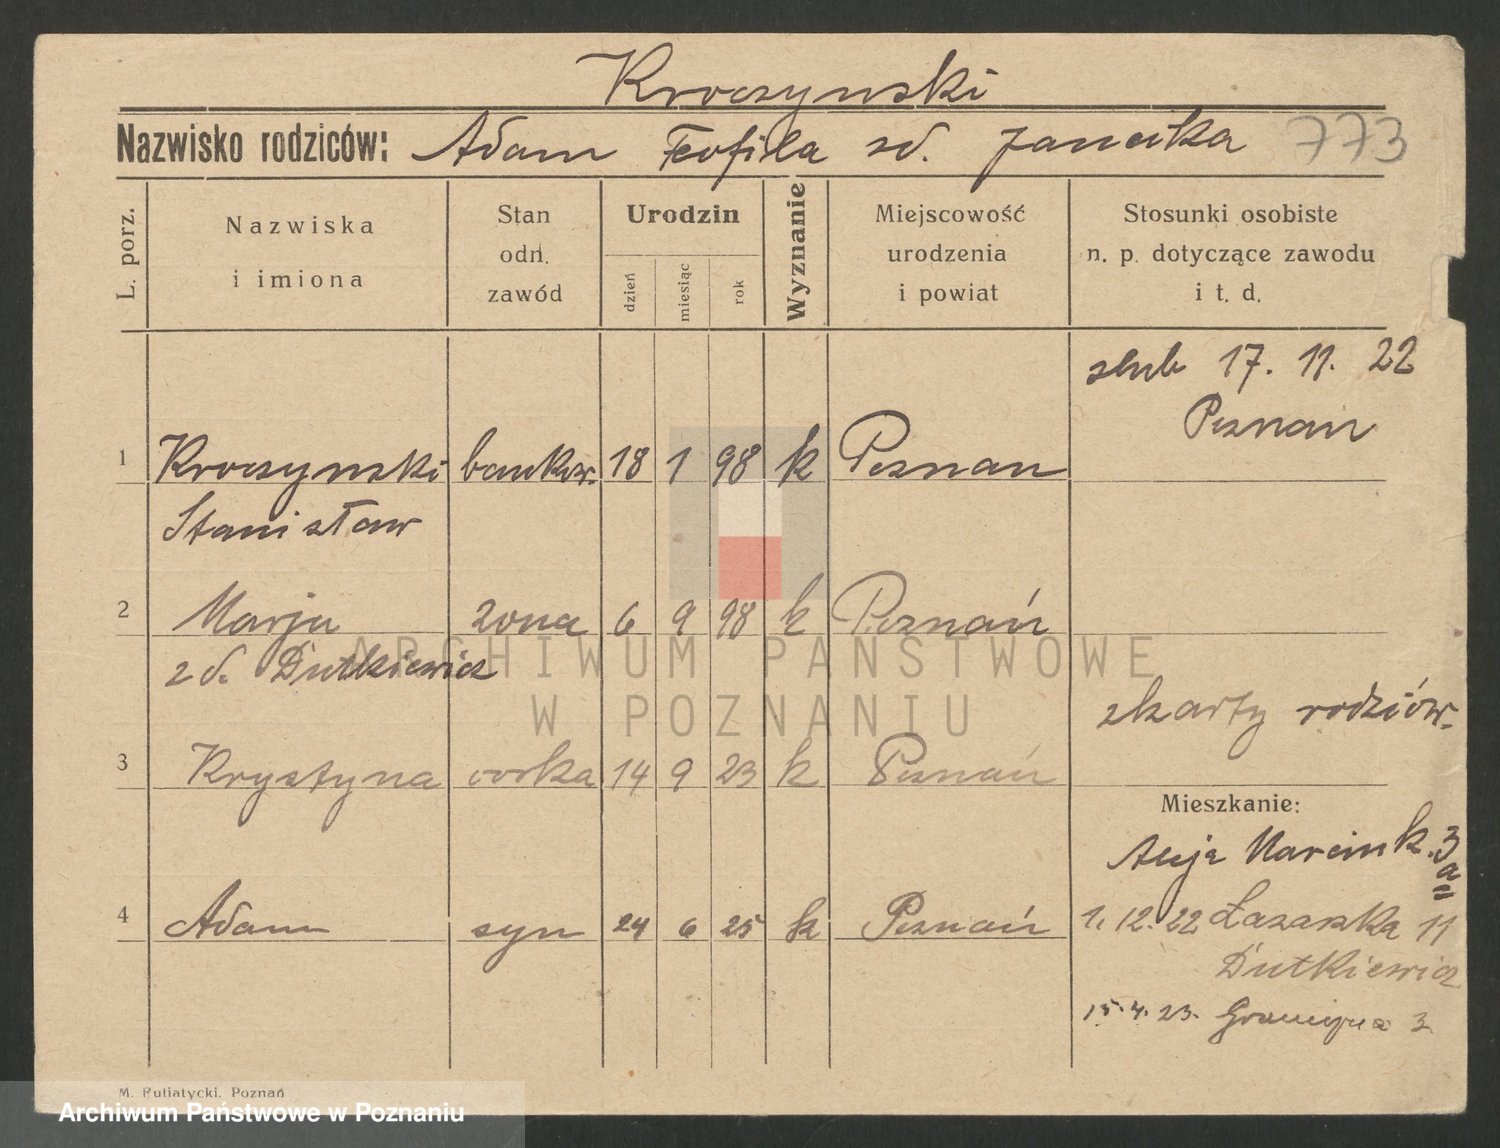 Kroczynski
Nazwisko rodziców: Adam Teofila zd. 773
L. porz.
Nazwiska
i imiona
Stan
odn.
zawód
Urodzin
dzień
miesiąc
rok
Wyznanie
Miejscowość
urodzenia
i powiat
Stosunki osobiste
n. p. dotyczące zawodu
i t. d.
slub 17. 11. 22
Poznan
1 Kroczynski bankow. 18 1 98 k Poznan
Stanisław
2 Marja zona 6 9 98 k Poznań
z d. Dutkiewicz
z karty rodziców.
3 Krystyna corka 14 9 23 k Poznań
Mieszkanie:
Aleje Marcink. 3
a
4 Adam syn 24 6 25 k Poznań 1. 12. 22 Łazarska 11
Dutkiewicz
15. 4. 23. 3
M. Putiatycki, Poznań
ARCHIWUM PAŃSTWOWE
W POZNANIU
Archiwum Państwowe w Poznaniu